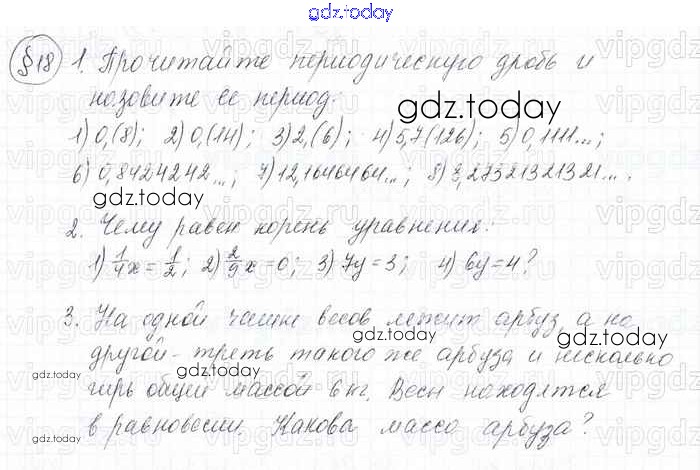 gdz.today
§18 1. Прочитайте периодическую дробь и
назовите ее период:
gdz.today
1) 0,(8); 2) 0,(14); 3) 2,(6); 4) 5,7(126); 5) 0,1111...;
6) 0,8424242...; 7) 12,1646464...; 8) 3,27521321321... .
gdz.today
2. Чему равен корень уравнения:
1) 1/4 x = 1/2; 2) 2/9 x = 0; 3) 7y = 3; 4) 6y = 4?
3. На одной чашке весов лежит арбуз, а на
gdz.today
gdz.today
другой - треть такого же арбуза и несколько
gdz.today
гирь общей массой 6 кг. Весы находятся
gdz.today
в равновесии. Какова масса арбуза?
gdz.today